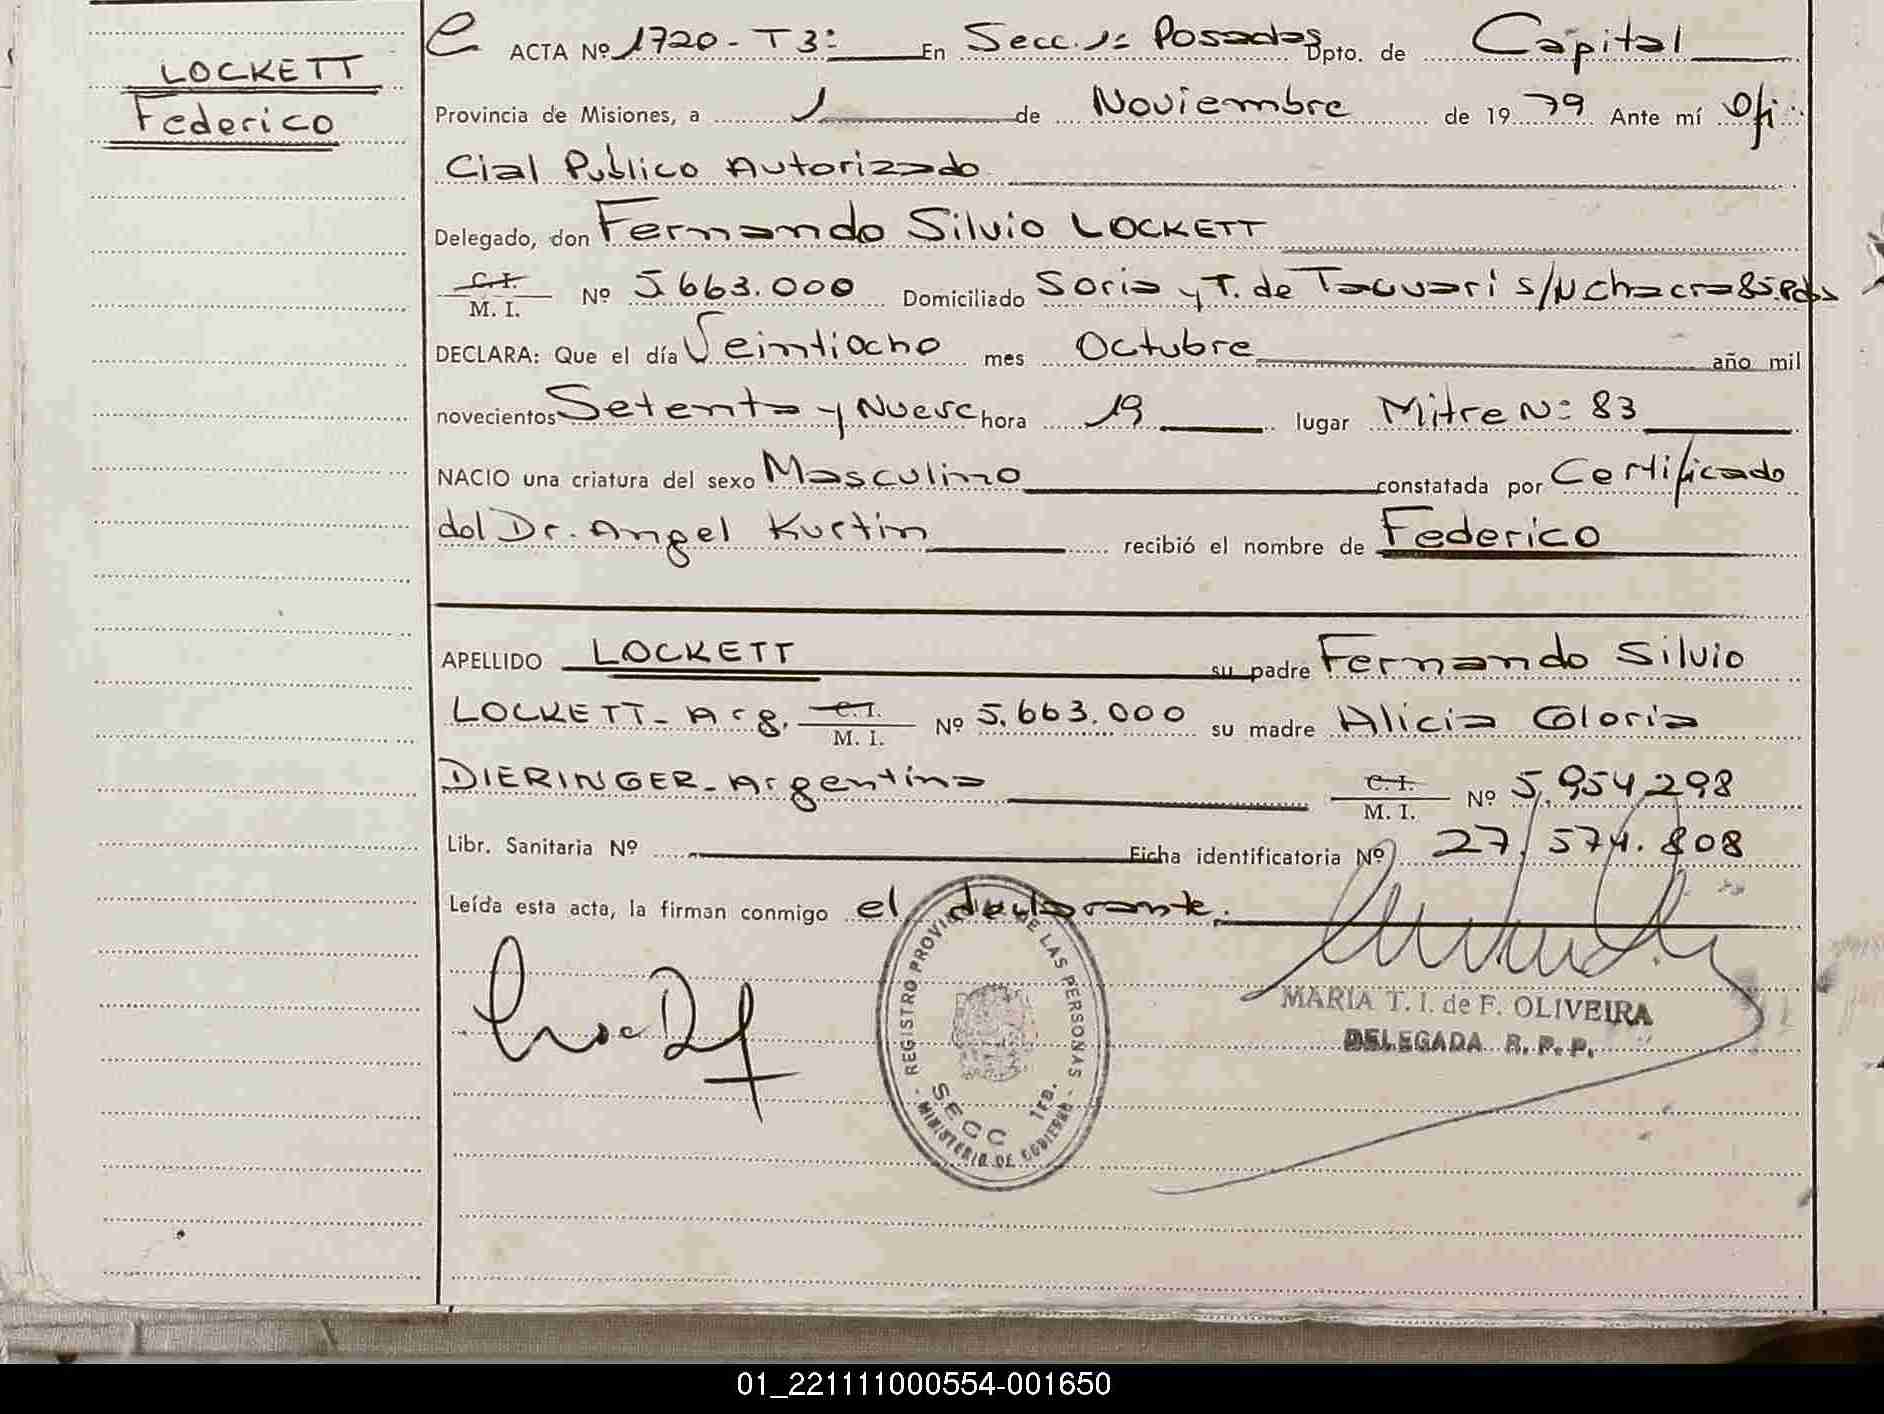 LOCKETT
Federico
ACTA Nº 1720 - T 3: En Secc. 1= Posadas Dpto. de Capital
Provincia de Misiones, a 1 de Noviembre de 1979 Ante mí Ofi
cial Publico Autorizado
Delegado, don Fernando Silvio LOCKETT
C. I. / M. I. Nº 5.663.000 Domiciliado Soria y T. de Tacuari s/N chacra 85.Pdas
DECLARA: Que el día Veintiocho mes Octubre año mil
novecientos Setenta y Nueve hora 19 lugar Mitre N= 83
NACIO una criatura del sexo Masculino constatada por Certificado
del Dr. Angel Kurtin recibió el nombre de Federico
APELLIDO LOCKETT su padre Fernando Silvio
LOCKETT - Arg. C. I. / M. I. Nº 5.663.000 su madre Alicia Gloria
DIERINGER - Argentina C. I. / M. I. Nº 5.954.298
Libr. Sanitaria Nº Ficha identificatoria Nº 27.574.808
Leída esta acta, la firman conmigo el declarante.
REGISTRO PROVINCIAL DE LAS PERSONAS
SECC 1ra.
MINISTERIO DE GOBIERNO
MARIA T. I. de F. OLIVEIRA
DELEGADA R. P. P.
01_221111000554-001650